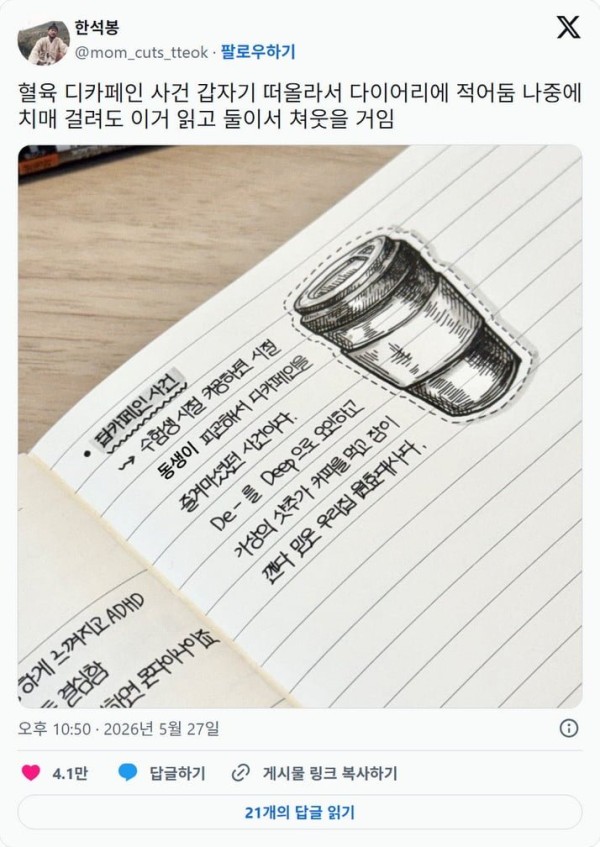 한석봉
@mom_cuts_tteok · 팔로우하기
혈육 디카페인 사건 갑자기 떠올라서 다이어리에 적어둠 나중에
치매 걸려도 이거 읽고 둘이서 쳐웃을 거임
• 디카페인 사건
→ 수험생 시절 카공하면 시절
동생이 피곤해서 디카페인을
즐겨마셨던 사건이다.
De- 를 Deep으로 오인하고
가상의 샷추가 커피를 먹고 잠이
깼다 믿은 우리집 원효대사다.
하게 느껴지고 ADHD
결심함
하면 몬다이나이죠
오후 10:50 · 2026년 5월 27일
4.1만 답글하기 게시물 링크 복사하기
21개의 답글 읽기